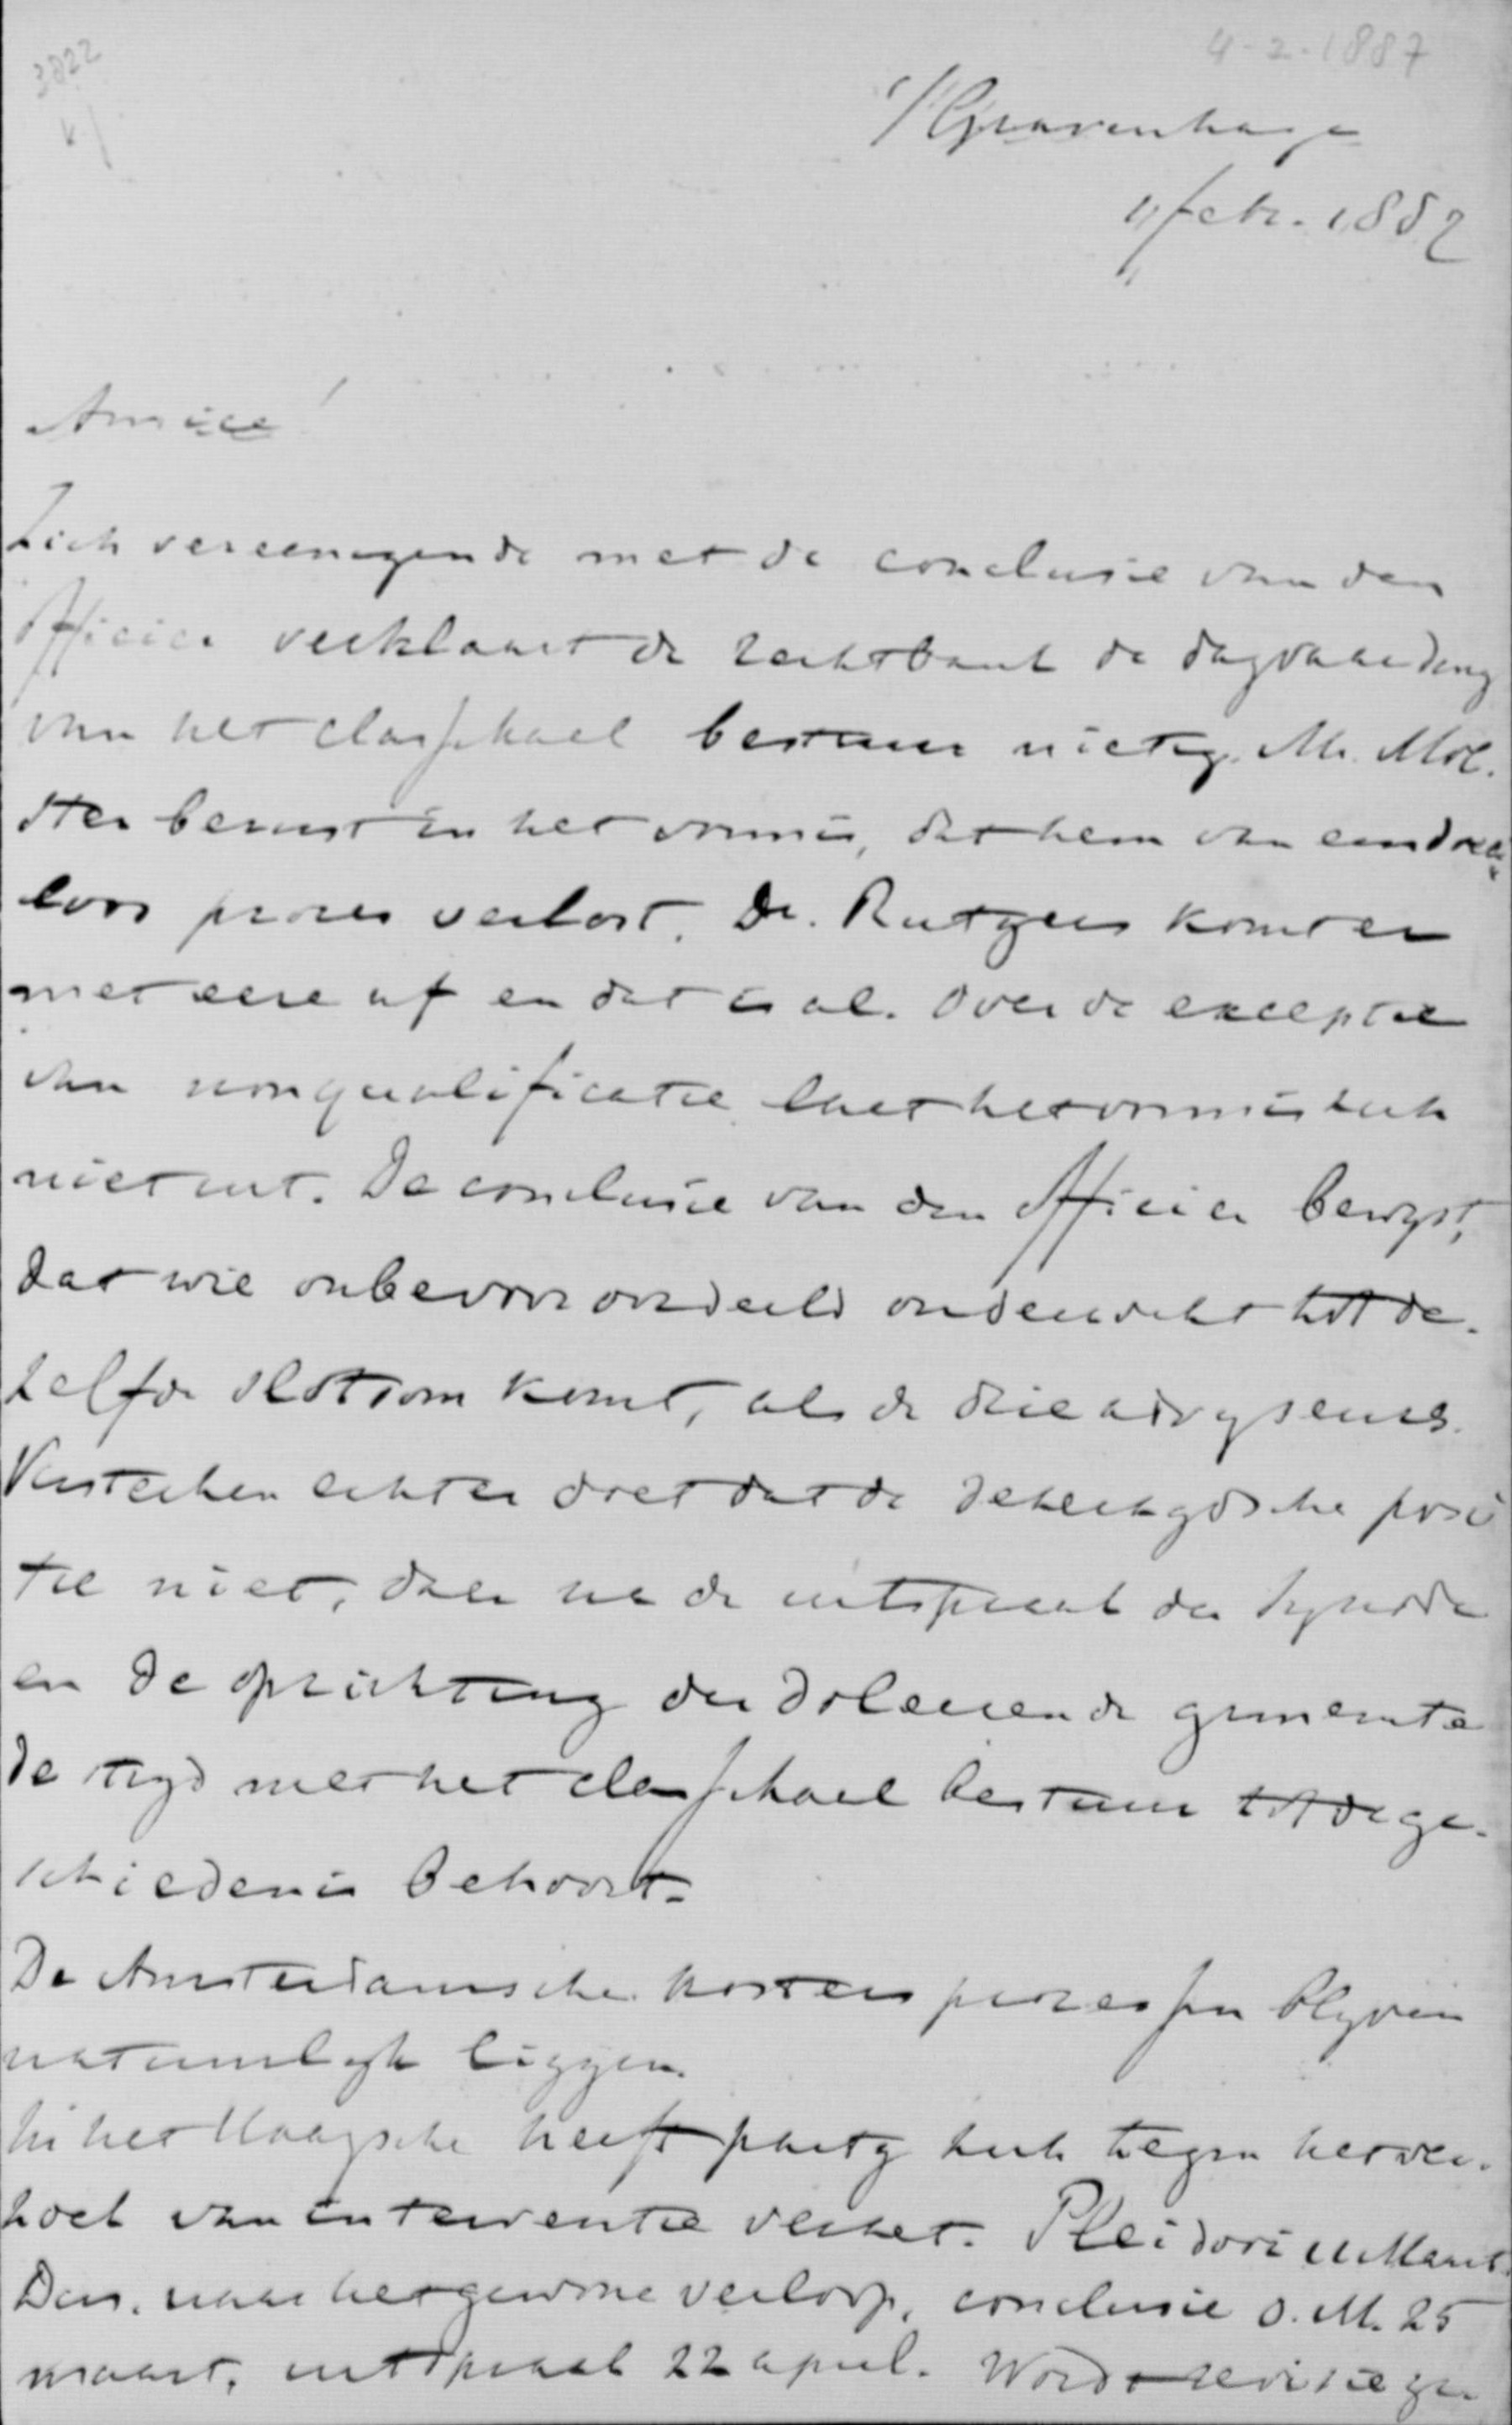 3822
4-2-1887
's Gravenhage
4 febr. 1887
Amice!
Zich vereenigende met de conclusie van den
Officier verklaart de rechtbank de dagvaarding
van het classikaal bestuur nietig. Mr. Mol-
ster berust in het vonnis, dat hem van een
loos proces verlost. Dr. Rutgers komt er
met eere af en dat is al. Over de exceptie
van nonqualificatie laat het vonnis zich
niet uit. De conclusie van den Officier bewyst,
dat wie onbevooroordeeld onderzoekt tot de-
zelfde slotsom komt, als de drie adryseurs.
Versterken echter doet dat de Dekerkgdsche posi
tie niet, daar na de uitspraak der Synode
en de oprichting der doleerende gemeente
de stryd met het classikaal bestuur tot de ge-
schiedenis behoort.
De Amsterdamsche kosters processen blyven
natuurlyk liggen.
In het Haagsche heeft party zich tegen het ver-
zoek van interventie verzet. Pleidooi 11 Maart.
Dan, naar het gewone verloop, conclusie O.M. 25
maart, uitspraak 22 april. Wordt revisie ge